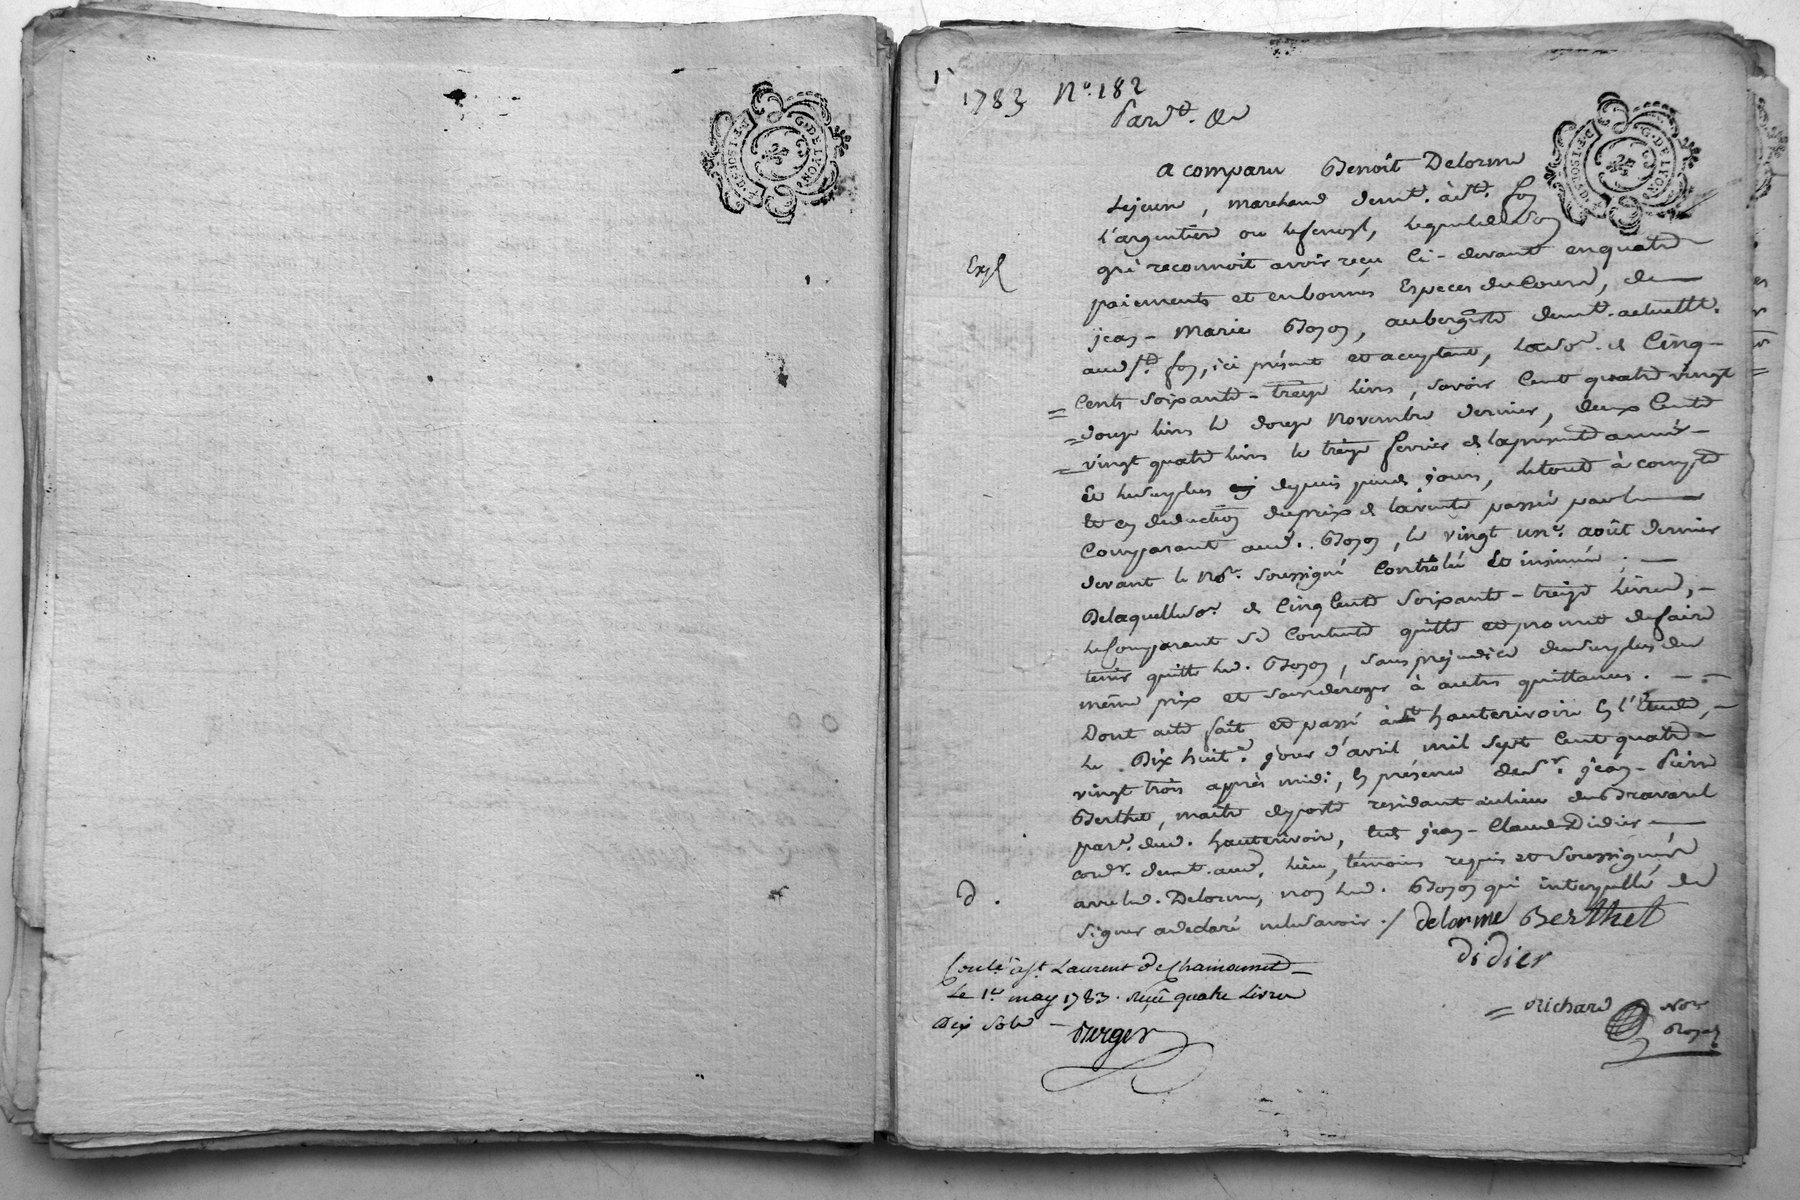 G. DE LYON
1783 N°. 182
Pardt. &a
G. DE LYON
a comparu Benoît Delorme
Lejeune, marchand demt. à St. foy
l'argentiere
gré reconnoit avoir reçu ci-devant en quatre
paiements et en bonnes Especes du Cours, de
jean-Marie Bozon, aubergiste demt. actuellt.
aud. St. foy, ici présent et acceptant, la so^e. de Cinq
Expé
Cents soixante-treize livres, savoir Cent quatre vingt
douze livres le douze Novembre dernier, deux Cents
vingt quatre livres le treize fevrier de la presente année
Et le surplus depuis peu de jours, le tout à compte
Et en deduction du prix de la vente passée par le
Comparant aud. Bozon, le vingt un^e. août dernier
devant le No^re. soussigné Controlée Et insinuée.
De laquelle so^e. de Cinq Cents soixante-treize Livres,
le Comparant se Contente quitte et promet de faire
tenir quitte led. Bozon, sans prejudice du surplus du
même prix et sans deroger à autres quittances.
Dont acte fait et passé à hauterivoire En l'Etude,
Le Dix huit^e. jour d'avril mil sept Cent quatre
vingt trois après midi, En présence de Sr. jean-Pierre
Berthet, maître de poste residant au lieu du Bravard
par^se. dud. hauterivoire, Et jean-Claude Didier
cord^r. demt. aud. lieu, témoins requis et soussignés
avec led. Delorme, non led. Bozon qui interpellé de
d.
signer a declaré ne le savoir. / delorme Berthet
didier
Contlé. à St. Laurent de Chamousset
Le 1er. may 1783. reçu quatre Livres
Dix Sols
Berger
Richard Nore
Royal